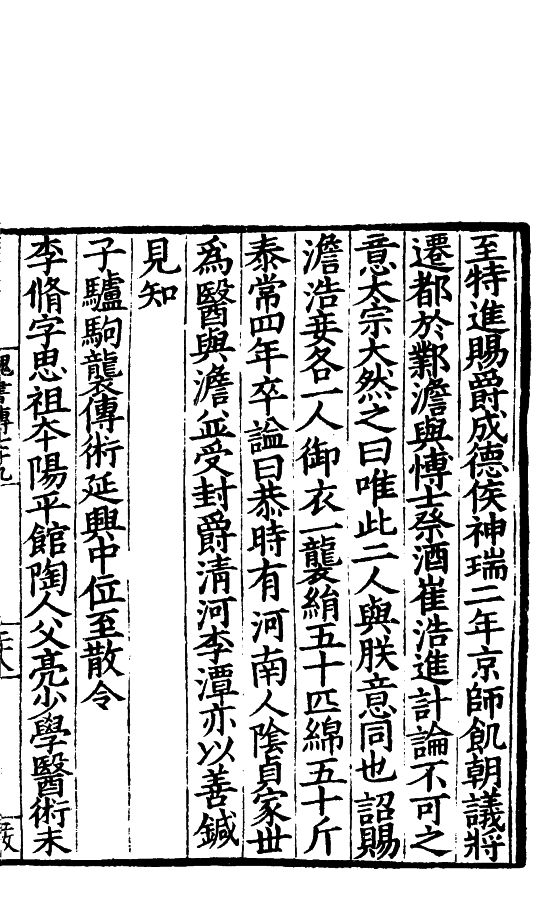 至特進賜爵成德侯神瑞二年京師飢朝議將
遷都於鄴澹與博士祭酒崔浩進計論不可之
意太宗大然之曰唯此二人與朕意同也詔賜
澹浩妾各一人御衣一襲絹五十匹綿五十斤
泰常四年卒謚曰恭時有河南人陰貞家世
爲醫與澹並受封爵清河李潭亦以善鍼
見知
子驢駒襲傳術延興中位至散令
李脩字思祖本陽平館陶人父亮少學醫術未